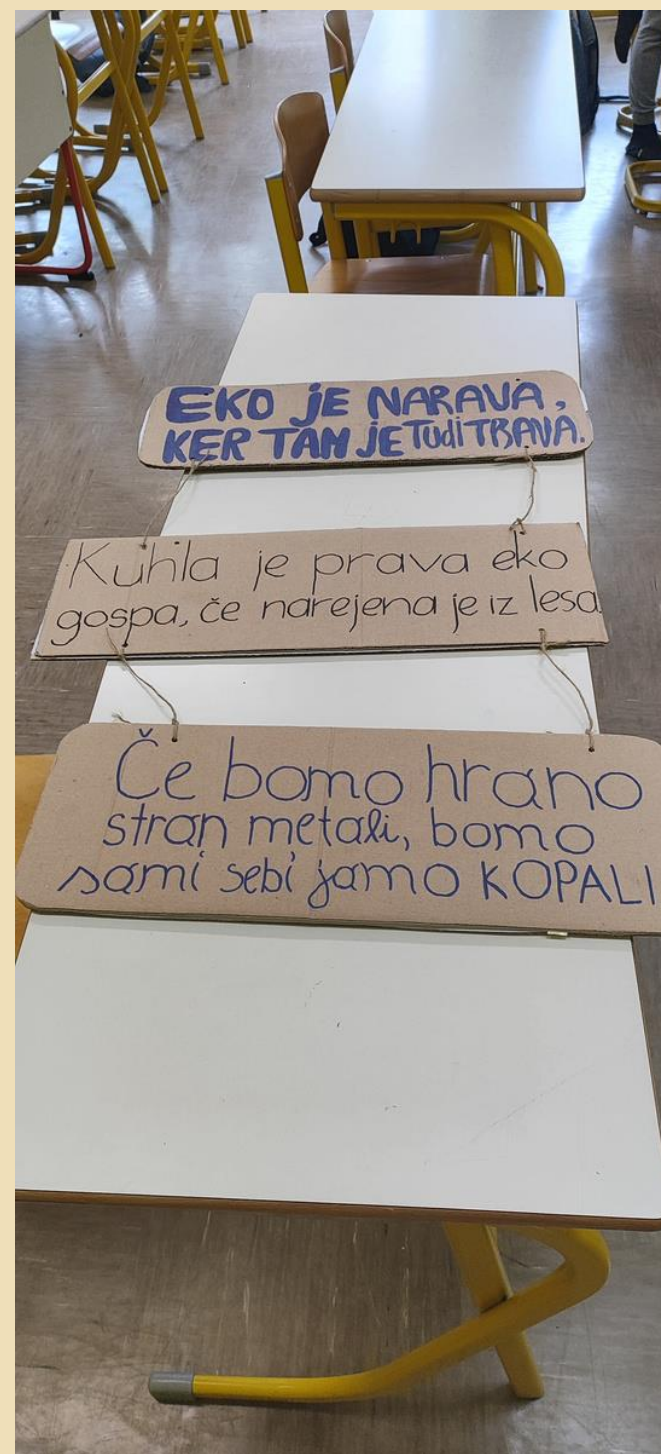 EKO JE NARAVA,
KER TAM JE TUDI TRAVA.
Kuhla je prava eko
gospa, če narejena je iz lesa
Če bomo hrano
stran metali, bomo
sami sebi jamo KOPALI